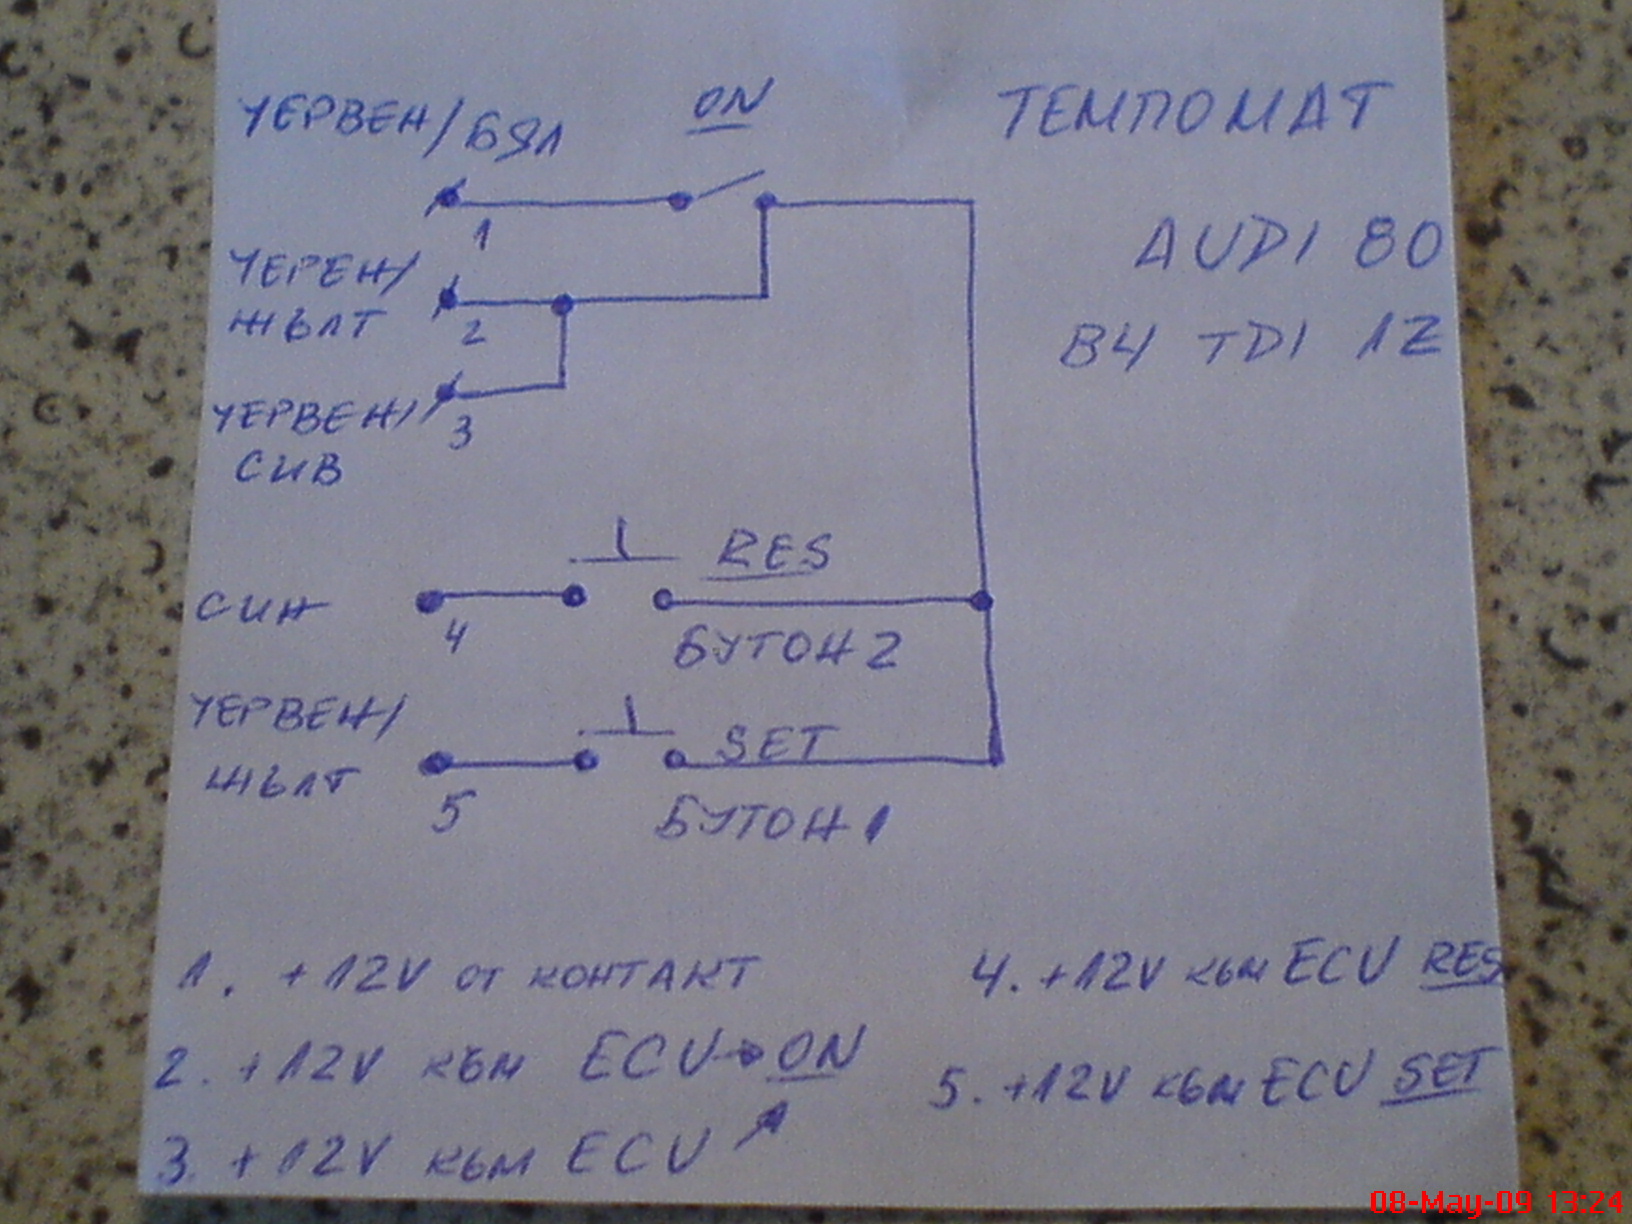 ЧЕРВЕН/БЯЛ
ON
ТЕМПОМАТ
1
ЧЕРЕН/
ЖЪЛТ
2
AUDI 80
B4 TDI 1Z
ЧЕРВЕН/
СИВ
3
RES
СИН
4
БУТОН 2
ЧЕРВЕН/
ЖЪЛТ
SET
5
БУТОН 1
1. +12V ОТ КОНТАКТ
2. +12V КЪМ ECU → ON
3. +12V КЪМ ECU ↗
4. +12V КЪМ ECU RES
5. +12V КЪМ ECU SET
08-May-09 13:24